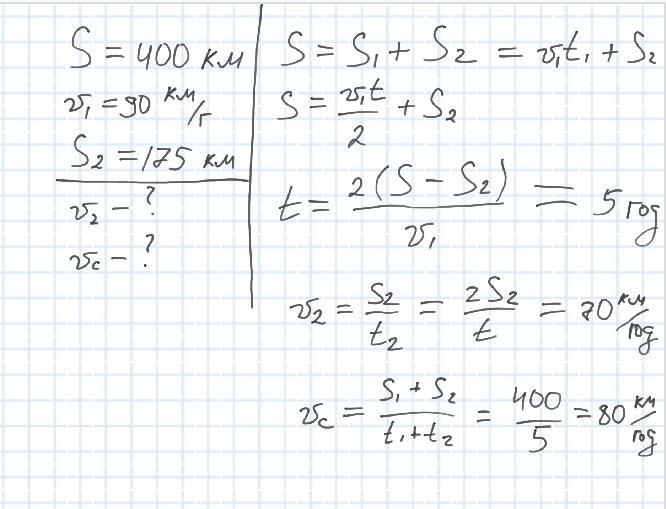 S = 400 км
v₁ = 90 км/г
S₂ = 175 км
v₂ - ?
vc - ?
S = S₁ + S₂ = v₁t₁ + S₂
S = v₁t/2 + S₂
t = 2(S - S₂)/v₁ = 5 год
v₂ = S₂/t₂ = 2S₂/t = 70 км/год
vc = S₁ + S₂/t₁+t₂ = 400/5 = 80 км/год